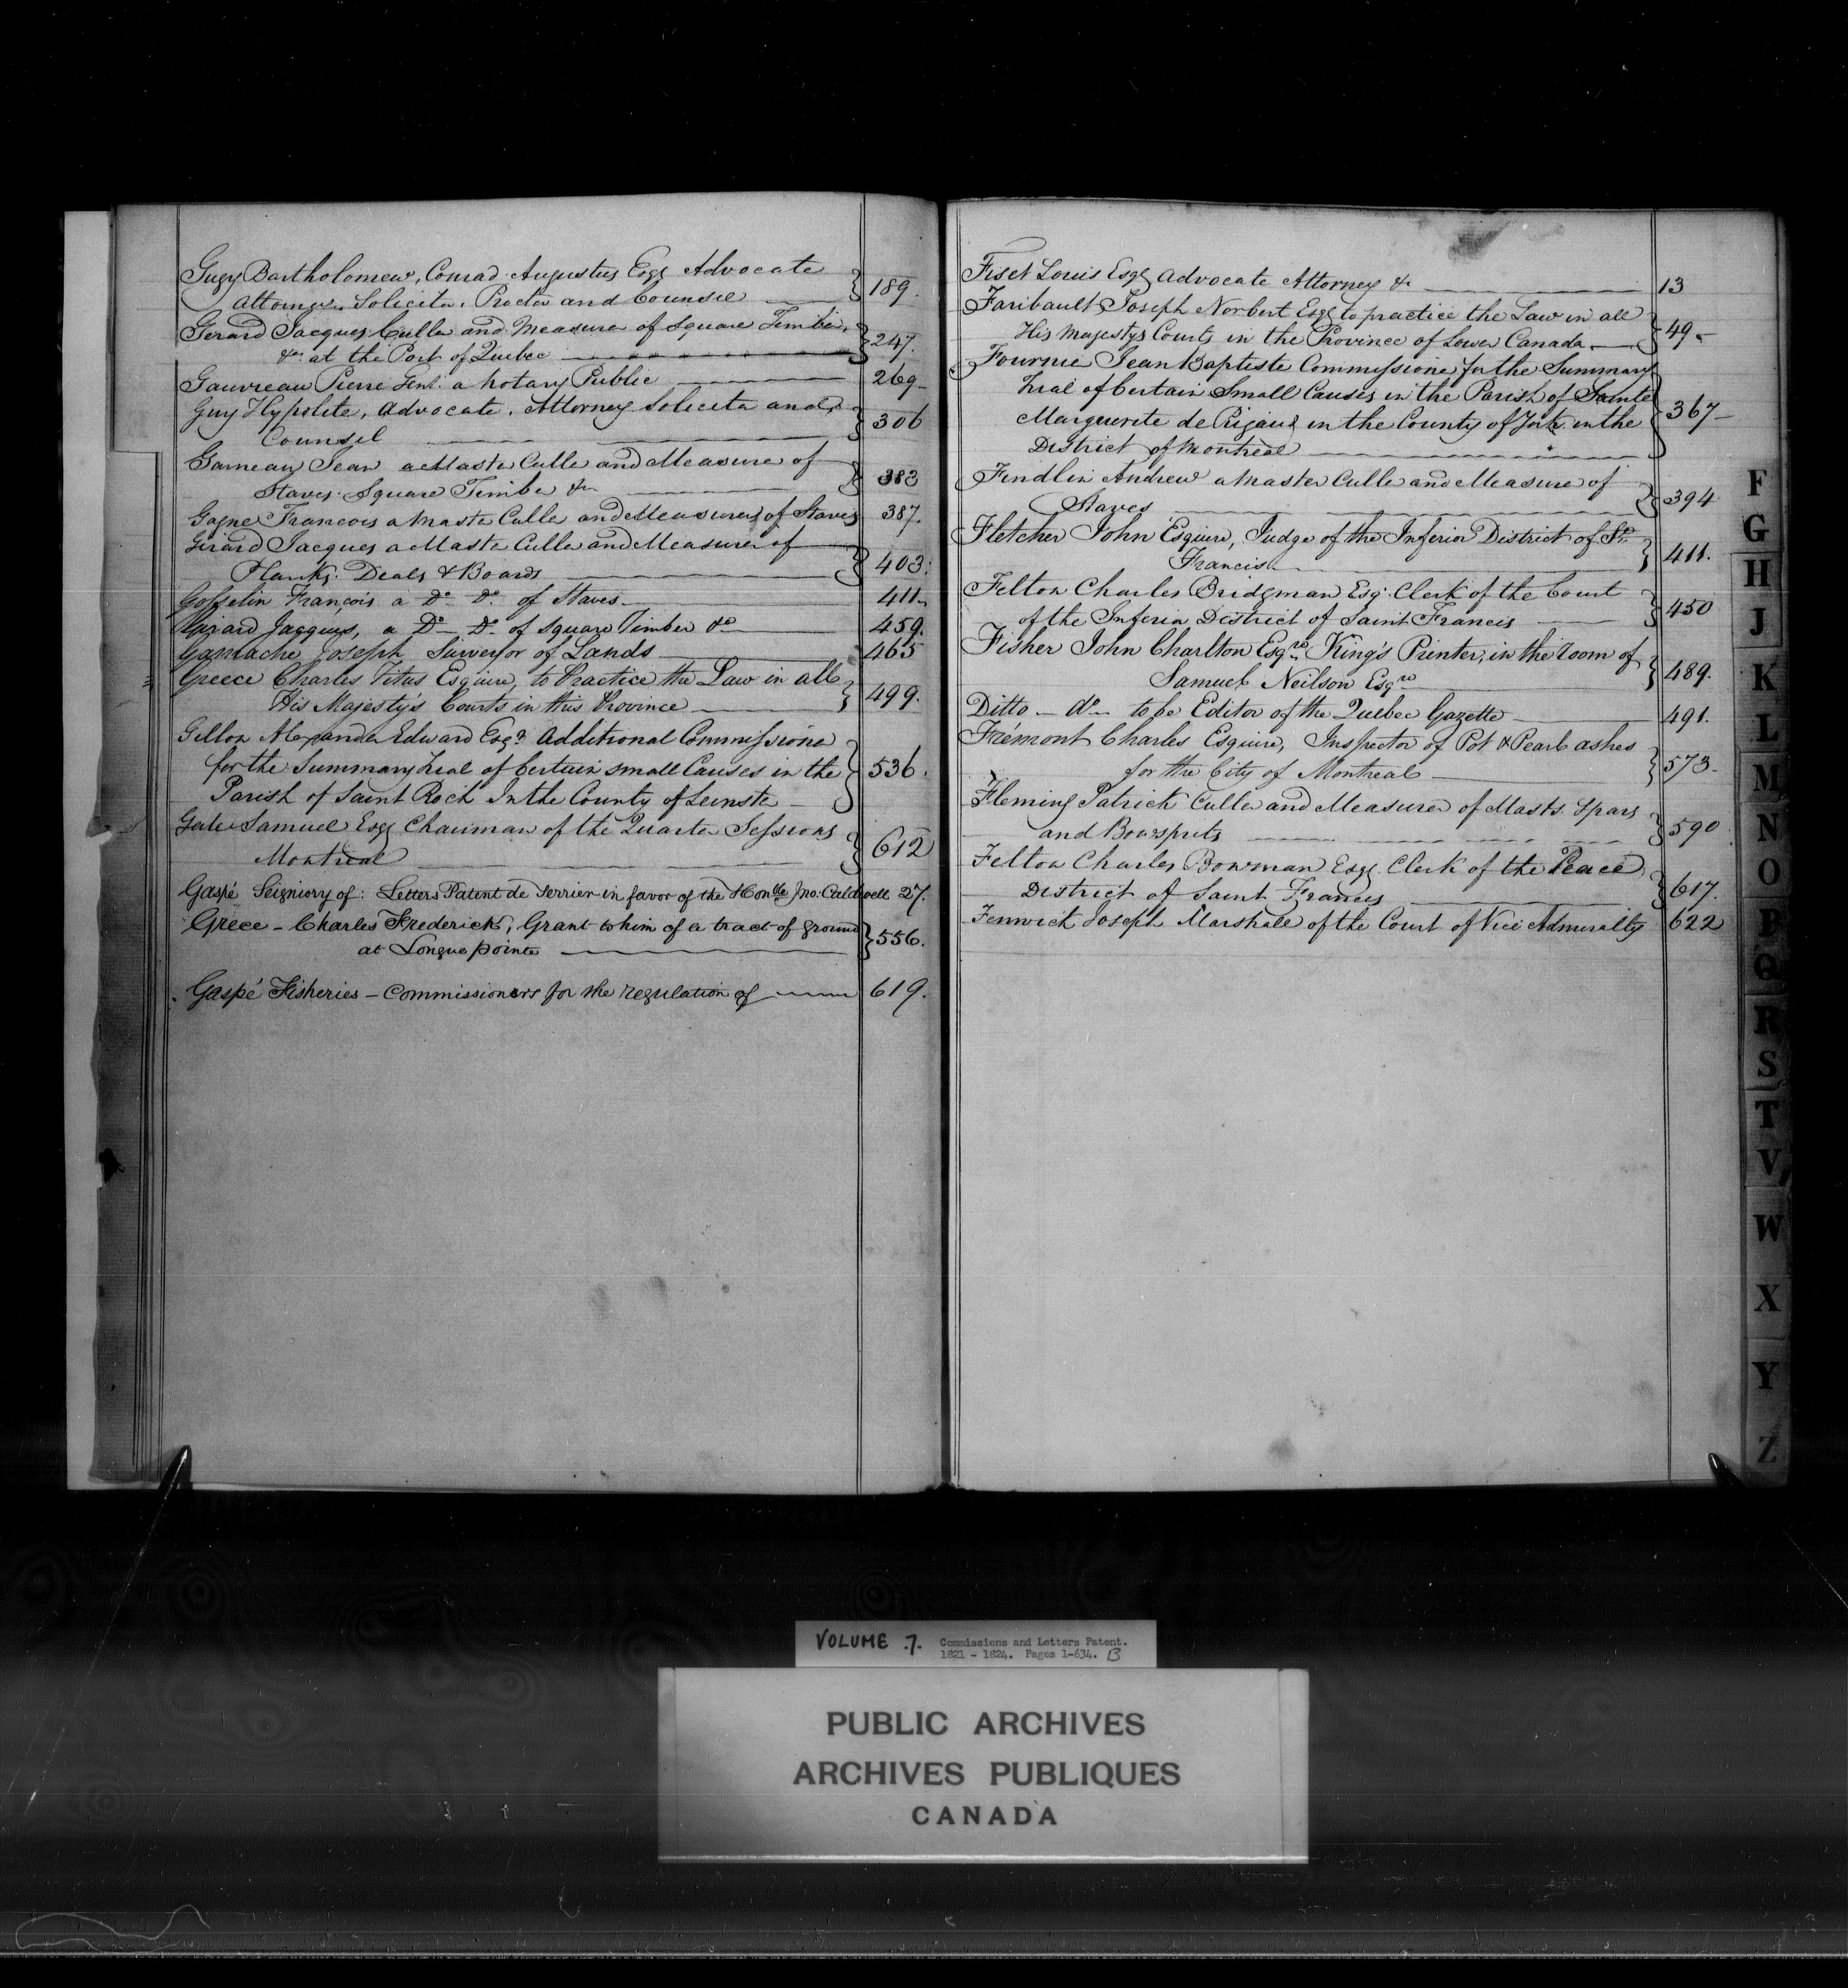 Gugy Bartholomew, Conrad Augustus Esqr Advocate
Attorney, Solicitor, Proctor and Counsel 189.
Gerard Jacques Culler and Measurer of Square Timber,
&c. at the Port of Quebec 247.
Gauvreau Pierre Gent. a Notary Public 269
Guy Hypolite, Advocate, Attorney Solicitor and
Counsel 306
Garneau Jean a Master Culler and Measurer of
Staves Square Timber &c 383
Gagne Francois a Master Culler and Measurer of Staves 387.
Girard Jacques a Master Culler and Measurer of
Planks. Deals & Boards 403.
Gosselin François a Do Do of Staves 411
Girard Jacques, a Do Do of Square Timber &c 459.
Gamache Joseph Surveyor of Lands 465
Greece Charles Titus Esquire, to Practice the Law in all
His Majesty's Courts in this Province 499.
Gillon Alexander Edward Esqr. Additional Commissioner
for the Summary trial of Certain small Causes in the
Parish of Saint Roch In the County of Leinster 536.
Gale Samuel Esqr Chairman of the Quarter Sessions
Montreal 612
Gaspé Seigniory of: Letters Patent de Terrier in favor of the Honble Jno. Caldwell 27.
Grece - Charles Frederick, Grant to him of a tract of ground
at Longue pointe 556.
Gaspé Fisheries - Commissioners for the regulation of 619.
Fiset Louis Esqr Advocate Attorney &c 13
Faribault Joseph Norbert Esqr to practice the Law in all
His Majestys Courts in the Province of Lower Canada 49
Fournier Jean Baptiste Commissioner for the Summary
trial of Certain Small Causes in the Parish of Sainte
Marguerite de Rigaud in the County of York in the
District of Montreal 367
Findlin Andrew a Master Culler and Measurer of
Staves 394
Fletcher John Esquire, Judge of the Inferior District of St.
Francis 411.
Felton Charles Bridgman Esqr. Clerk of the Court
of the Inferior District of Saint Francis 450
Fisher John Charlton Esqre King's Printer, in the room of
Samuel Neilson Esqre 489.
Ditto - do - to be Editor of the Quebec Gazette 491.
Fremont Charles Esquire, Inspector of Pot & Pearl ashes
for the City of Montreal 573
Fleming Patrick Culler and Measurer of Masts. Spars
and Bowsprits 590
Felton Charles Bowman Esqr Clerk of the Peace
District of Saint Francis 617.
Fenwick Joseph Marshall of the Court of Vice Admiralty 622
F
G
H
J
K
L
M
N
O
P
Q
R
S
T
V
W
X
Y
Z
VOLUME 7. Commissions and Letters Patent.
1821 - 1824. Pages 1-634. B
PUBLIC ARCHIVES
ARCHIVES PUBLIQUES
CANADA